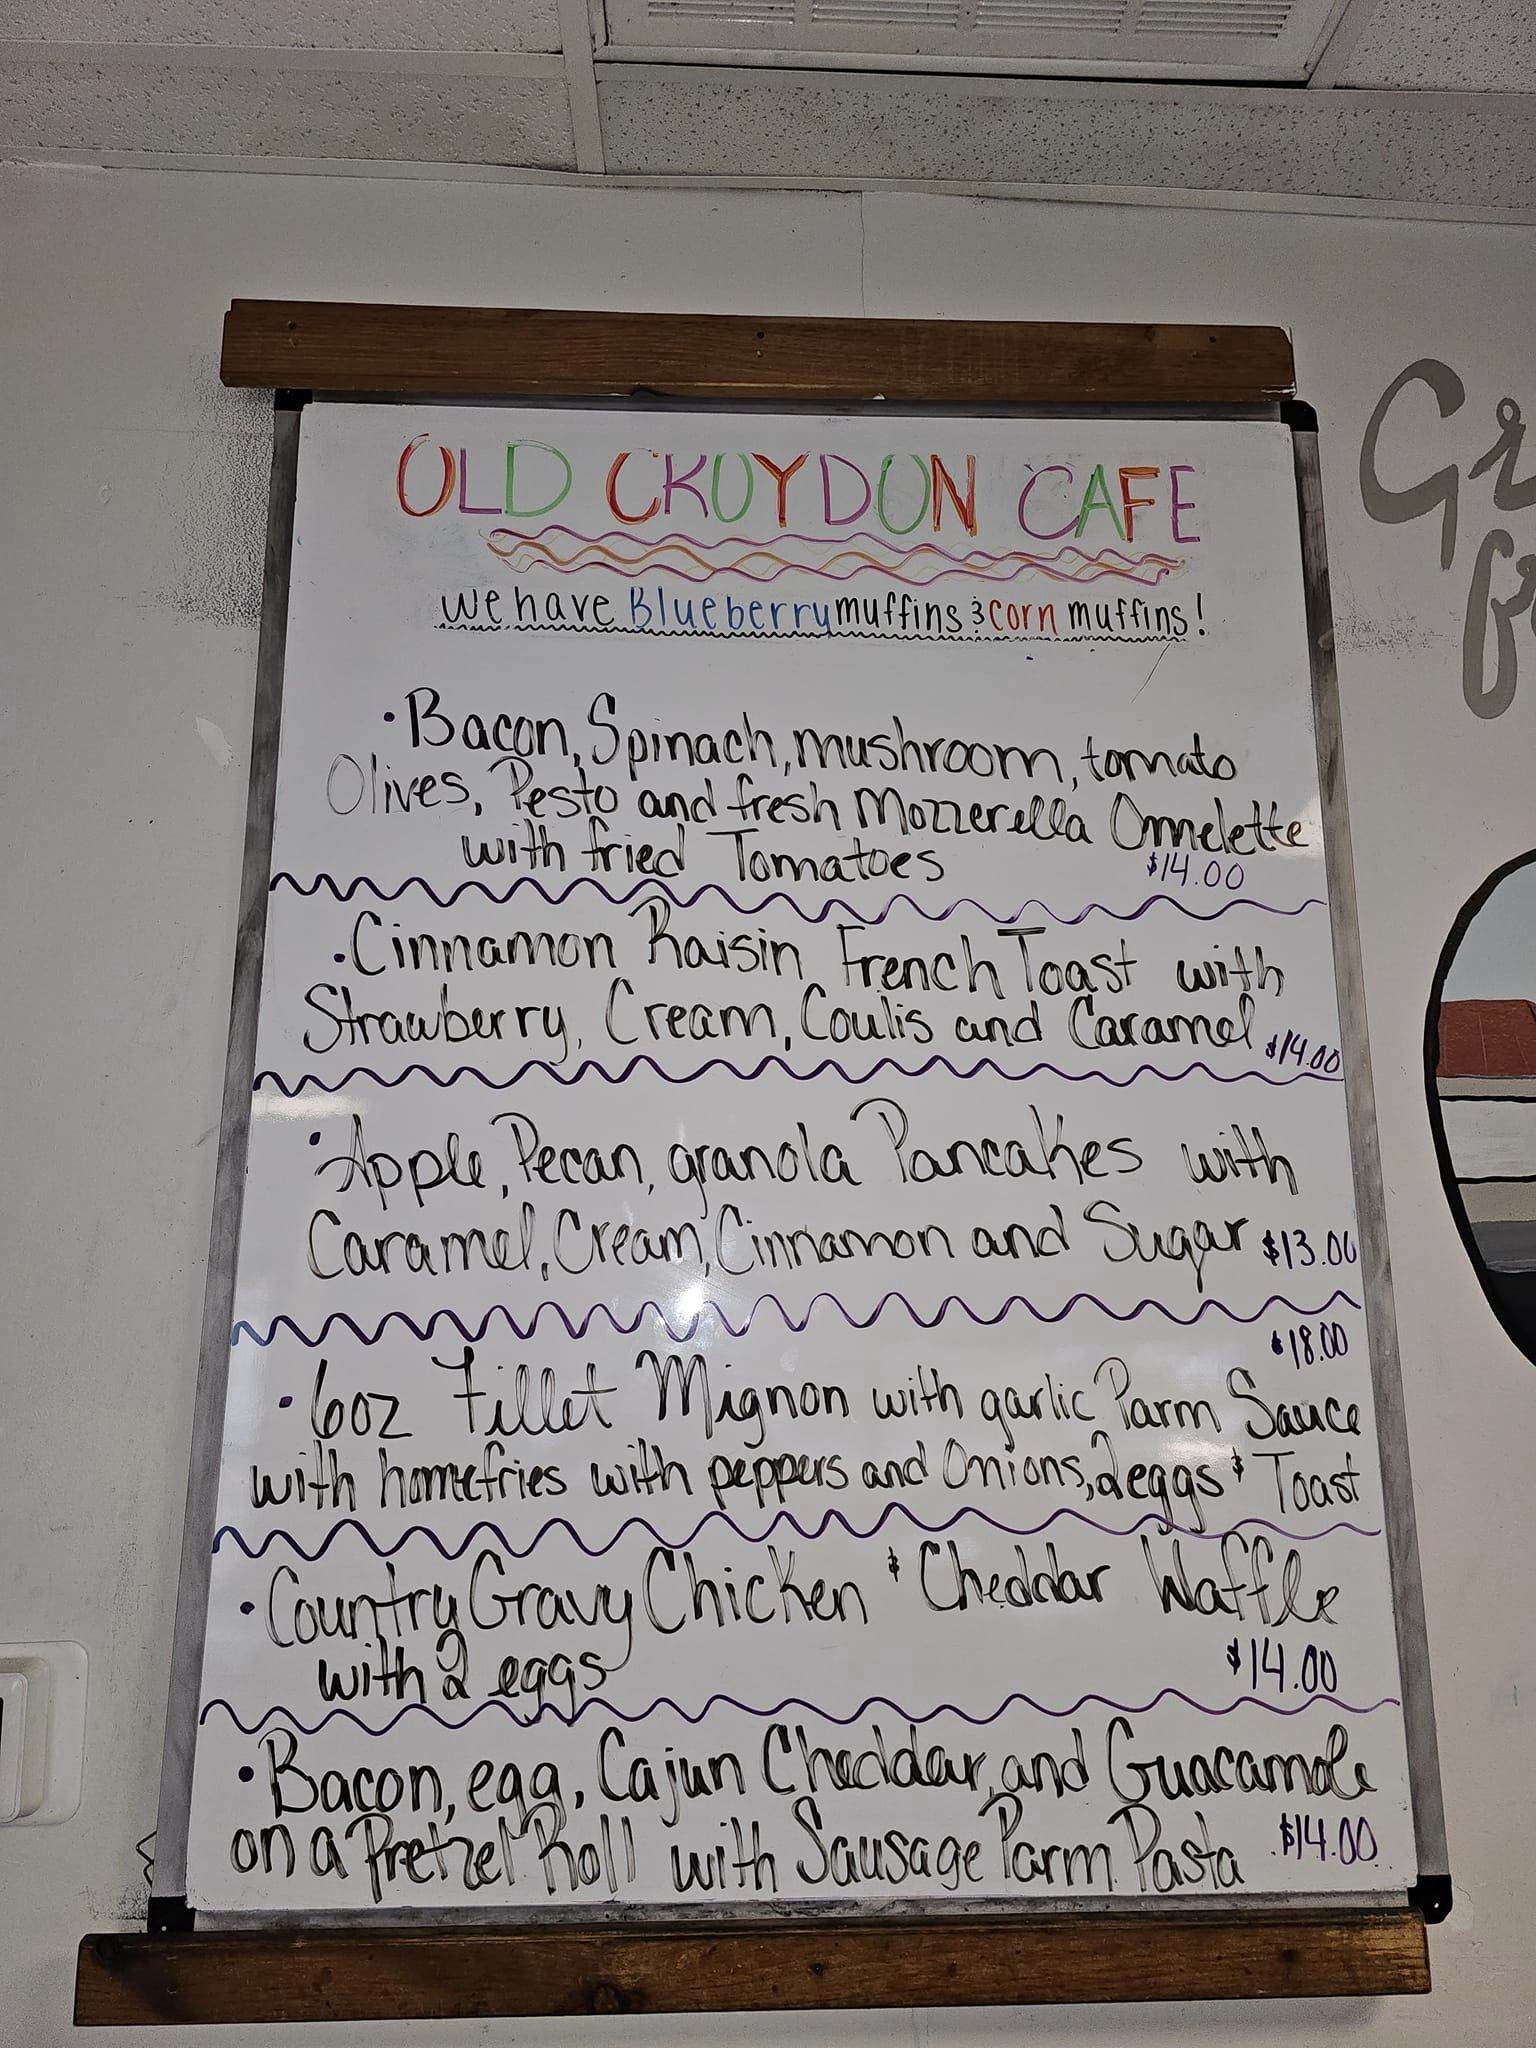 OLD CROYDON CAFE
We have Blueberry muffins & corn muffins!
• Bacon, Spinach, mushroom, tomato
Olives, Pesto and fresh Mozzerella Omnelette
with fried Tomatoes $14.00
• Cinnamon Raisin French Toast with
Strawberry, Cream, Coulis and Caramel $14.00
• Apple, Pecan, granola Pancakes with
Caramel, Cream, Cinnamon and Sugar $13.00
$18.00
• 6oz Fillet Mignon with garlic Parm Sauce
with homefries with peppers and Onions, 2 eggs & Toast
• Country Gravy Chicken & Cheddar Waffle
with 2 eggs $14.00
• Bacon, egg, Cajun Cheddar, and Guacamole
on a Pretzel Roll with Sausage Parm Pasta $14.00